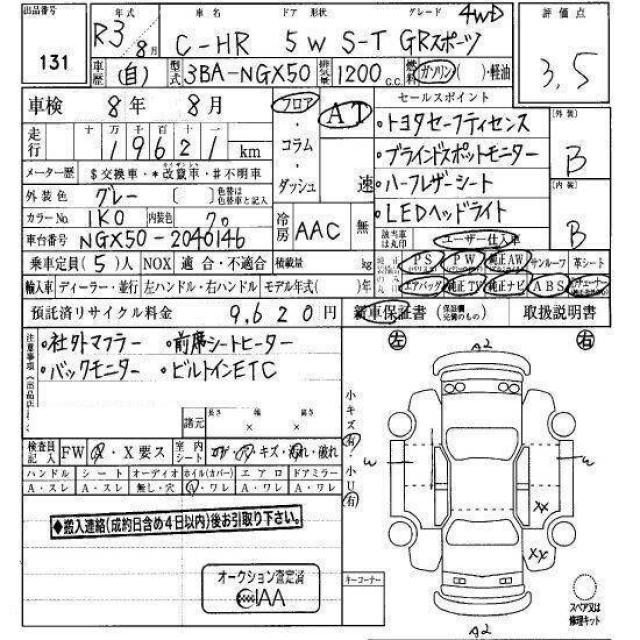 出品番号 131
年式 R3 8月
車名 ドア 形状 グレード
C-HR 5W S-T GRスポーツ 4WD
評価点 3.5
車歴 (自) 型式 3BA-NGX50 排気量 1200 C.C. 燃料 ガソリン( )・軽油
車検 8年 8月
フロア・コラム・ダッシュ
AT 速
セールスポイント
・トヨタセーフティセンス
・ブラインドスポットモニター
・ハーフレザーシート
・LEDヘッドライト
外装 B
内装 B
走行 十 万 千 百 十 一
19621 km
メーター歴 $交換車・*改竄車・#不明車
外装色 グレー ( ) 色替は色替車と記入
カラーNo. 1K0 内装色 クロ
冷房 AAC 無
車台番号 NGX50-2040146
該当車は丸印 ユーザー仕入車
乗車定員(5)人 NOX 適合・不適合 積載量 kg
PS PW 純正AW サンルーフ 革シート
エアバッグ 純正TV 純正ナビ ABS
輸入車 ディーラー・並行 左ハンドル・右ハンドル モデル年式( )年
預託済リサイクル料金 9,620円
新車保証書 (保証欄完備のもの) 取扱説明書
注意事項(出品店
・社外マフラー ・前席シートヒーター
・バックモニター ・ビルトインETC
諸元 長さ × 幅 × 高さ
検査員記入 FW A・X要ス 室内シート コゲ・ア・キズ・汚れ・破れ
ハンドル シート オーディオ ホイル(カバー) エアロ ドアミラー
A・スレ A・スレ 無し・穴 A・ワレ A・ワレ A・ワレ
小キズ(有)・小U(有)
◆搬入連絡(成約日含め4日以内)後お引取り下さい。
オークション査定済
CIAA
キーコーナー
左 右
A2
W W
XX
XX
A2
スペア又は修理キット